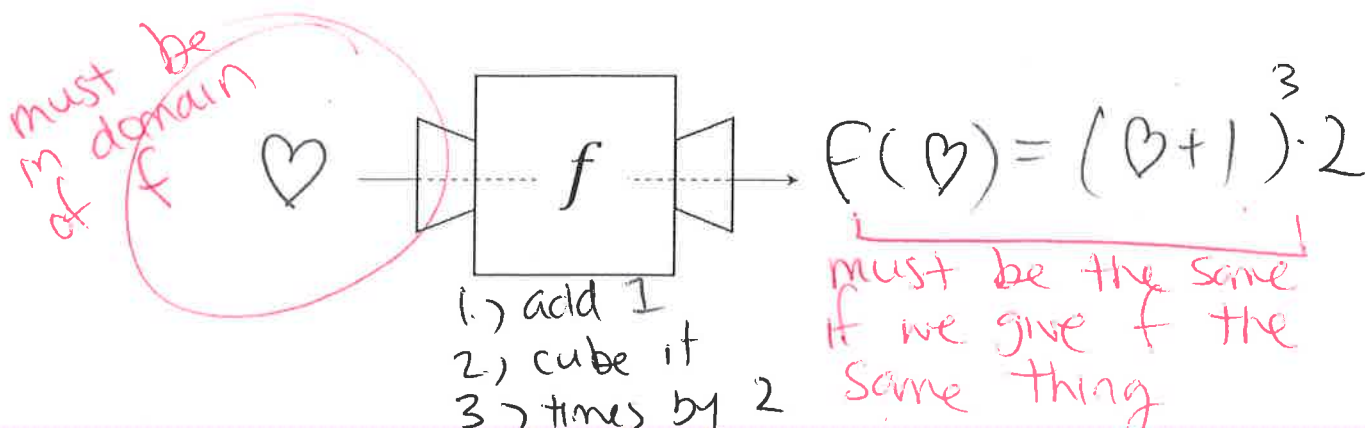 must be
in domain
of f
♡
f
f(♡) = (♡+1)³·2
1.) add 1
2.) cube it
3.) times by 2
must be the same
if we give f the
same thing